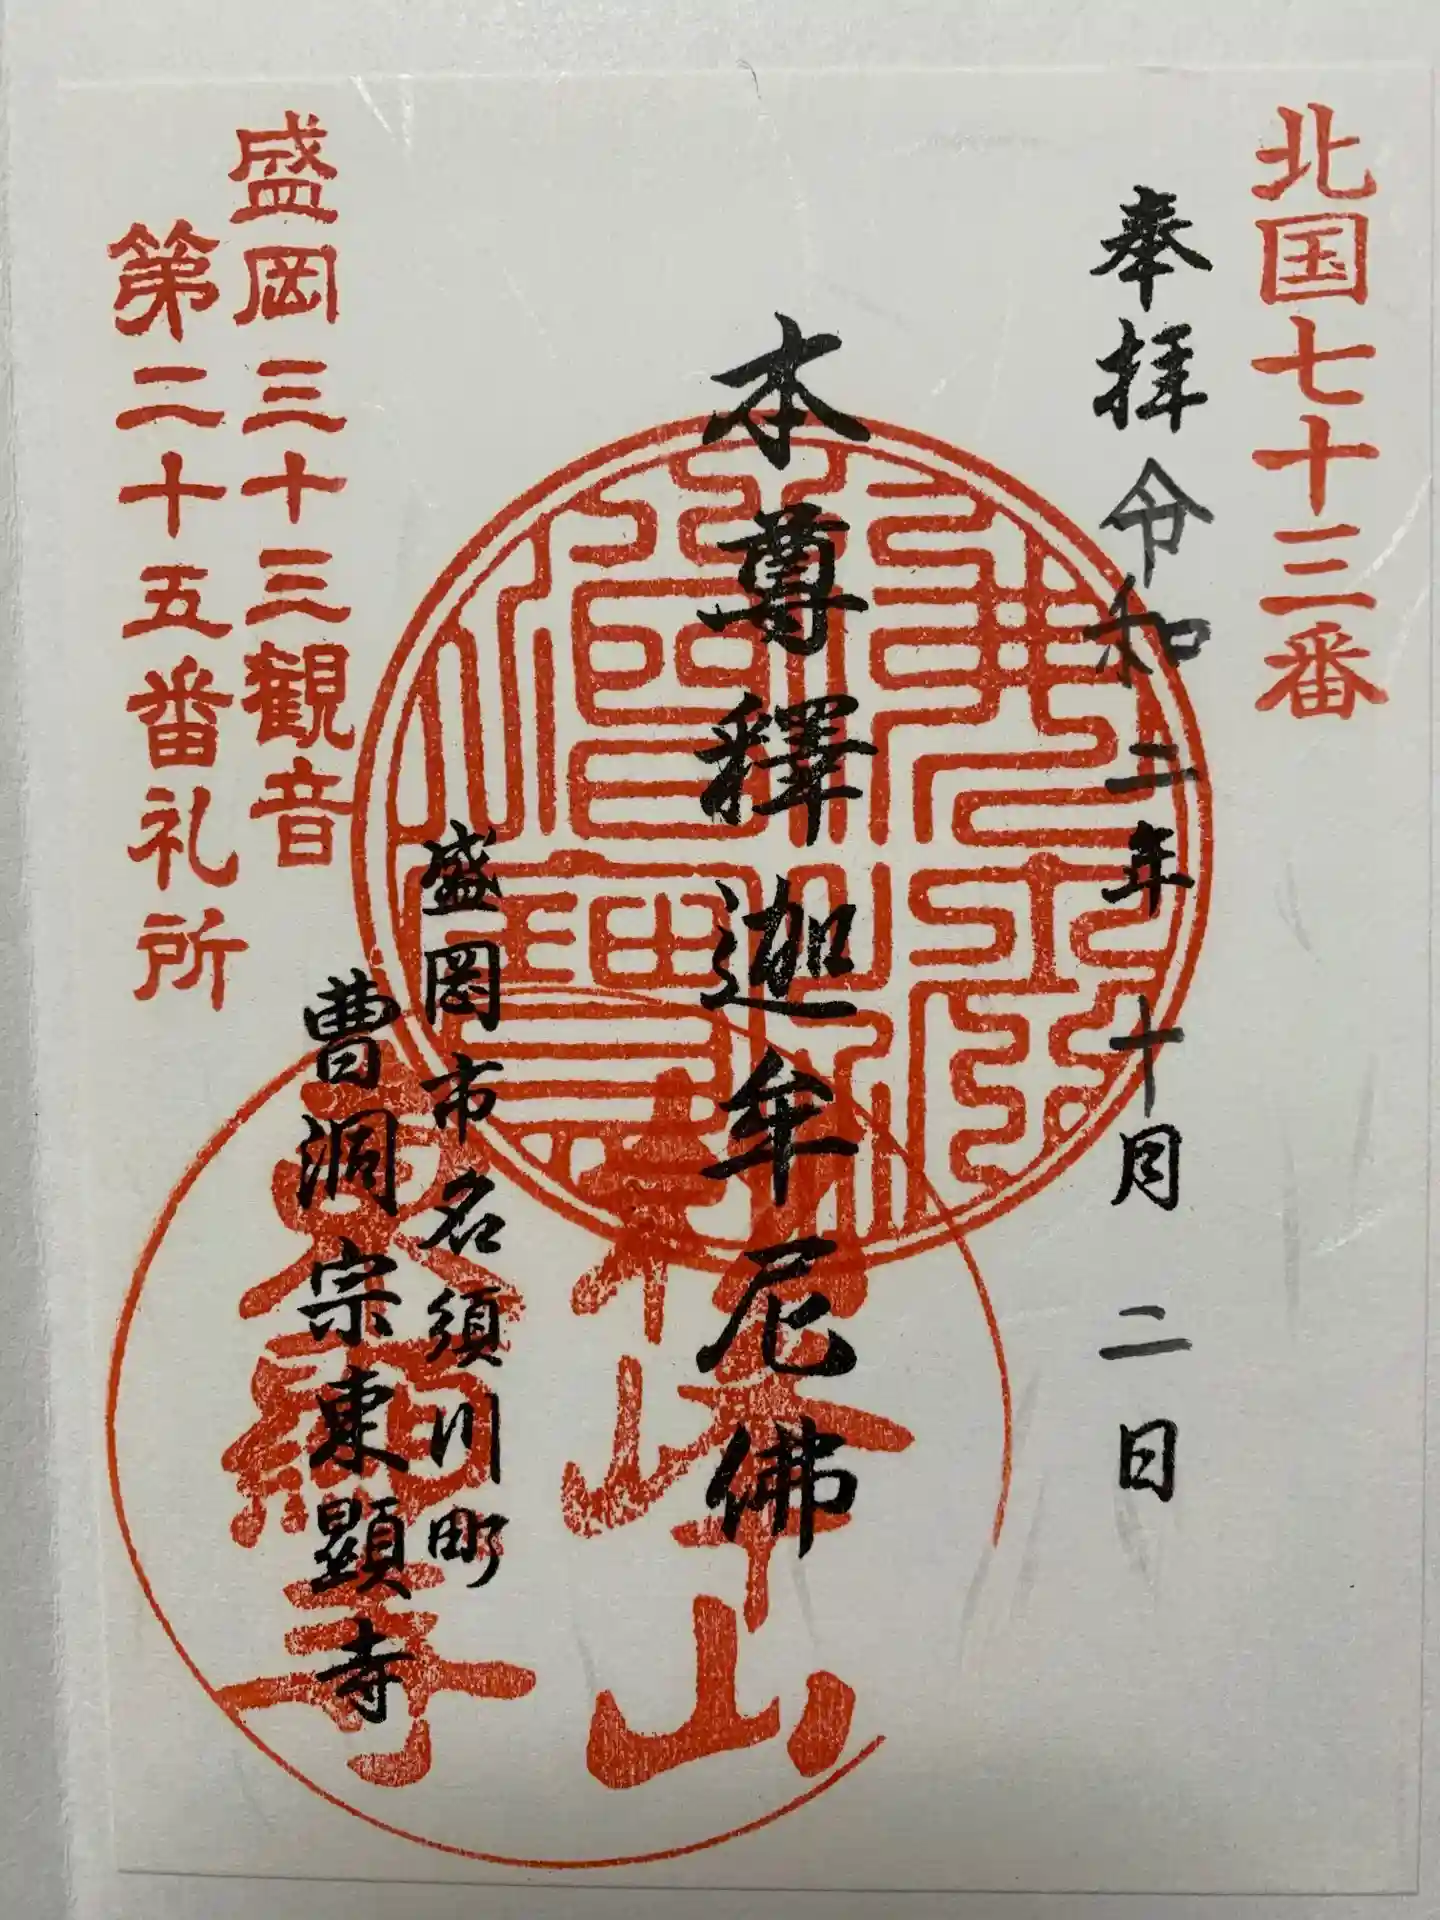 北国七十三番
奉拝 令和二年十月二日
本尊釋迦牟尼佛
盛岡市名須川町
曹洞宗東顯寺
盛岡三十三観音
第二十五番礼所
佛法僧寶
峰山
寺